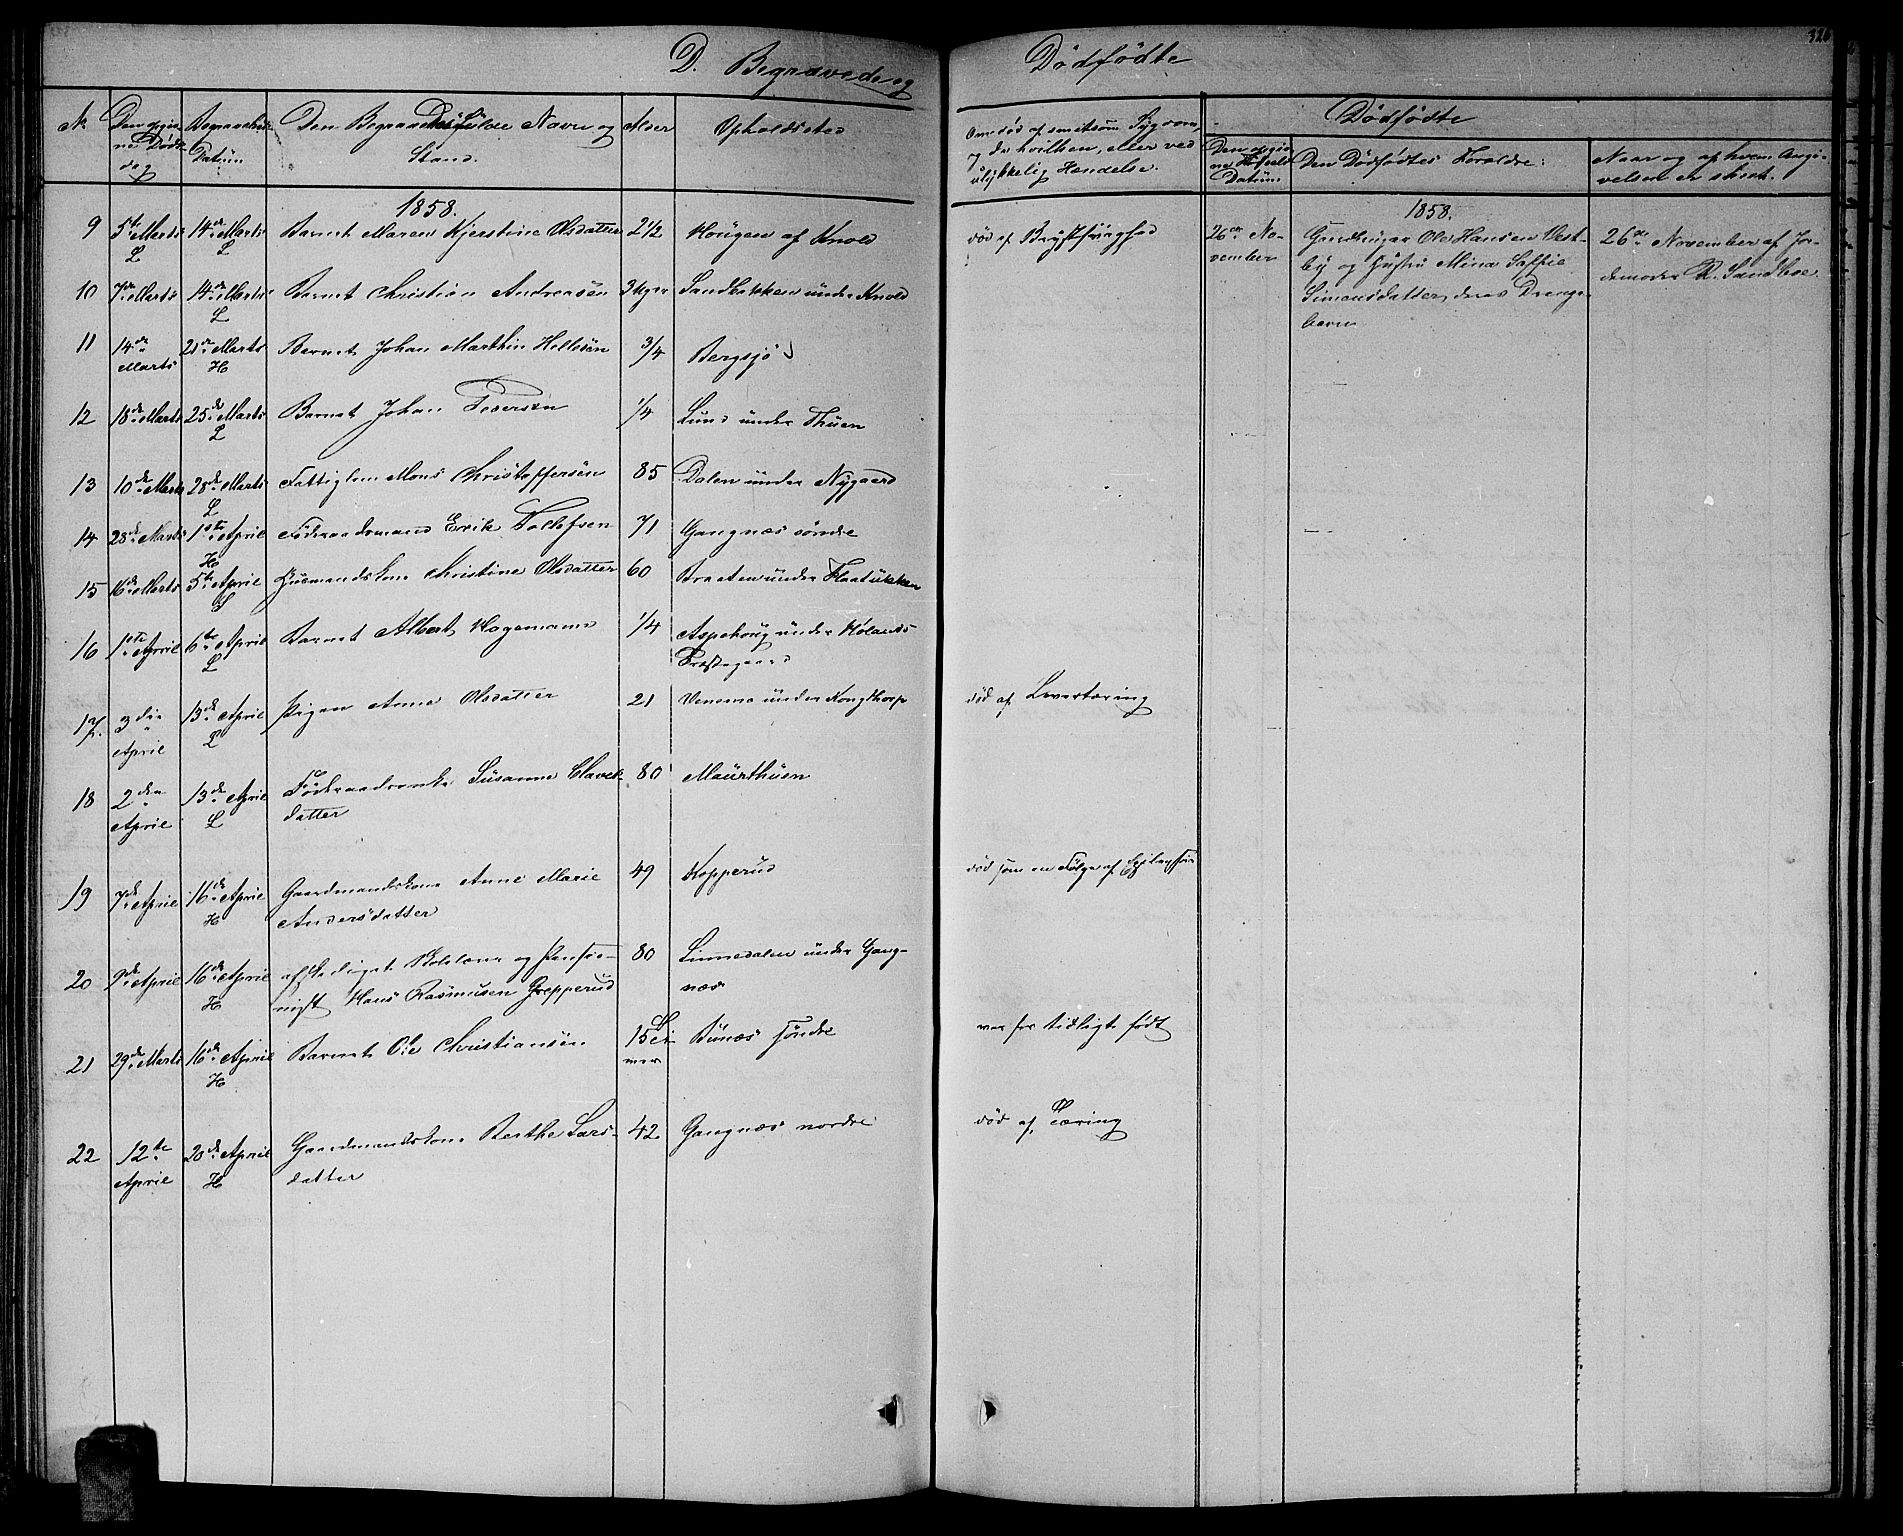 326
D. Begravede og Dødfødte
№ Den opgivne Dødsdag Begravelses Datum Den Begravedes fulde Navn og Stand. Alder Opholdssted
Om død af smitsom Sygdom, og da hvilken, eller ved ulykkelig Hændelse.
Dødfødte
Den opgivne Fødsels Datum. Den Dødfødtes Forældre: Naar og af hvem Angivelsen er skeet.
1858.
9 5te Marts 14de Marts L Barnet Maren Kjerstine Olsdatter 2 1/2 Hougen af Knold død af Brystsyge
10 7de Marts 14de Marts L Barnet Christian Andreasen 3 Uger Sandbakken under Knold
11 14de Marts 21de Marts H Barnet Johan Marthin Hellesen 3/4 Bergsjø
12 18de Marts 25de Marts L Barnet Johan Pedersen 1/4 Lund under Thuen
13 10de Marts 28de Marts L Fattiglem Mons Christoffersen 85 Dalen under Nygaard
14 28de Marts 1ste April H Føderaadsmand Erik Tollefsen 71 Gangnæs søndre
15 16de Marts 5te April L Huusmandskone Christine Olsdatter 60 Braaten under Flaatukken
16 1ste April 6te April L Barnet Albert Hagemann 1/4 Aspehoug under Hølands Præstegaard
17. 3die April 13de April L Pigen Anne Olsdatter 21 under Kongthorp død af
18 2den April 13de April L Føderaadsenke Susanne Clavesdatter 80 Maurthuen
19 7de April 16de April H Gaardmandskone Anne Marie Andersdatter 49 Kopperud død som en Følge af
20 9de April 16de April H afskediget og Hans Rasmusen Grepperud 80 Linnedalen under Gangnæs
21 29de Marts 16de April H Barnet Ole Christiansen 15 Timer Bunæs søndre var for tidligt født
22 12te April 20de April H Gaardmandskone Berthe Larsdatter 42 Gangnæs nordre død af Tæring
1858.
26de November Ole Hansen Vestby og Hustru Mina Sofie Simensdatter, deres Drengebarn
26de November af Jordemoder R. Sandboe